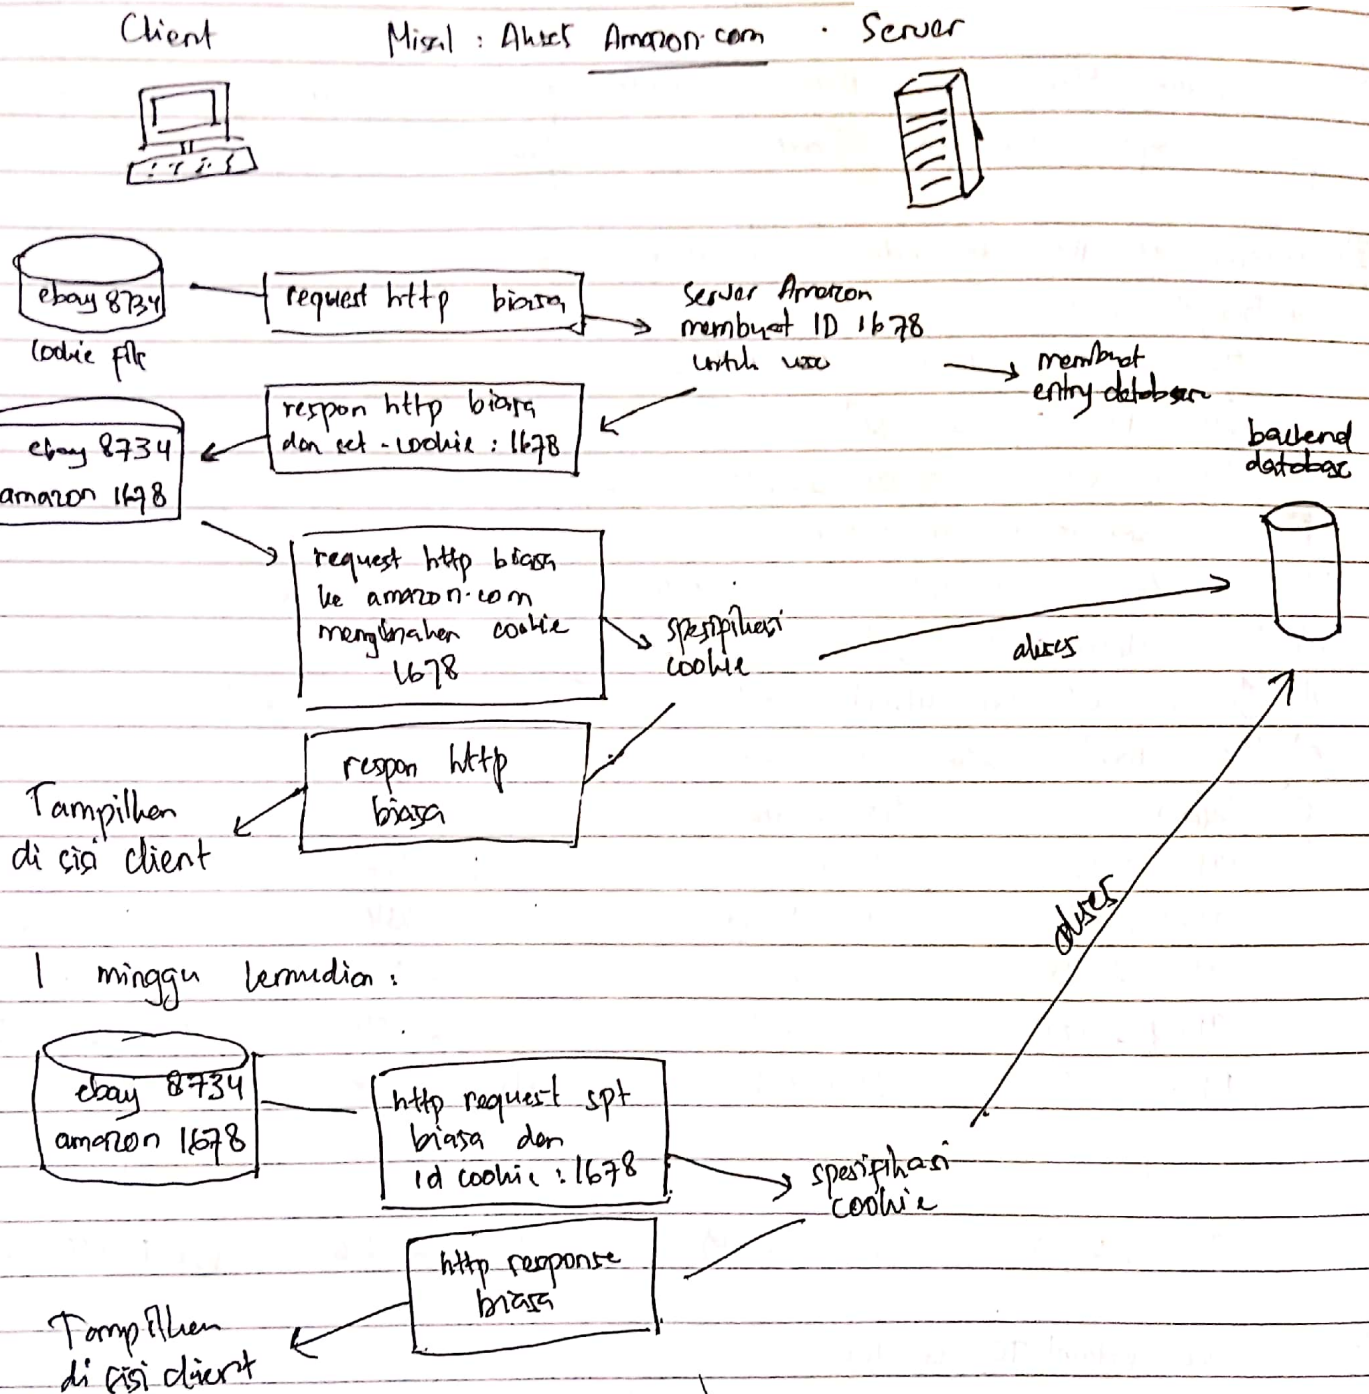 Client
Misal : Akses Amazon.com
Server
ebay 8734
cookie file
request http biasa
server Amazon
membuat ID 1678
untuk user
membuat
entry database
respon http biasa
dan set-cookie : 1678
ebay 8734
amazon 1678
backend
database
request http biasa
ke amazon.com
menggunakan cookie
1678
spesifikasi
cookie
akses
respon http
biasa
Tampilkan
di sisi client
akses
1 minggu kemudian :
ebay 8734
amazon 1678
http request spt
biasa dan
id cookie : 1678
spesifikasi
cookie
http response
biasa
Tampilkan
di sisi client